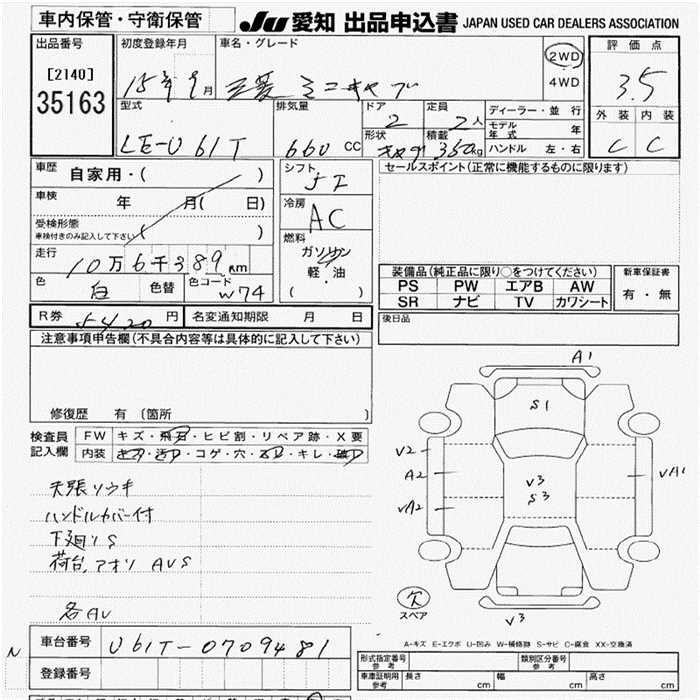 車内保管・守衛保管
JU 愛知 出品申込書 JAPAN USED CAR DEALERS ASSOCIATION
出品番号
[2140]
35163
初度登録年月
15年9月
車名・グレード
三菱 ミニキャブ
2WD
4WD
評価点
3.5
外装 内装
C C
型式
LE-U61T
排気量
660 CC
ドア
2
定員
2人
形状
積載
350kg
ディーラー・並行
モデル年式 年
ハンドル 左・右
車歴
自家用・( )
車検
年 月( 日)
受検形態
車検付きのみ記入して下さい ( )
走行
10万6千389km
色
白
色替
色コード
W74
シフト
冷房
AC
燃料
ガソリン
軽・油
( )
セールスポイント(正常に機能するものに限ります)
装備品(純正品に限り○をつけてください)
PS PW エアB AW
SR ナビ TV カワシート
新車保証書
有・無
R券
5420円
名変通知期限 月 日
後日品
注意事項申告欄(不具合内容等は具体的に記入して下さい)
修復歴 有(箇所 )
検査員
記入欄
FW キズ・飛石・ヒビ割・リペア跡・X要
内装 コゲ・穴・キレ・
天張ソウキ
ハンドルカバー付
下廻りS
荷台,アオリ AVS
各AV
A1
S1
V2
A2
VA2
V3
S3
VA1
V3
欠
スペア
A-キズ E-エクボ U-凹み W-補修跡 S-サビ C-腐食 XX-交換済
N
車台番号
U61T-0709481
登録番号
形式指定番号
参考
類別区分番号
参考
車庫証明用
参考
長さ cm 幅 cm 高さ cm